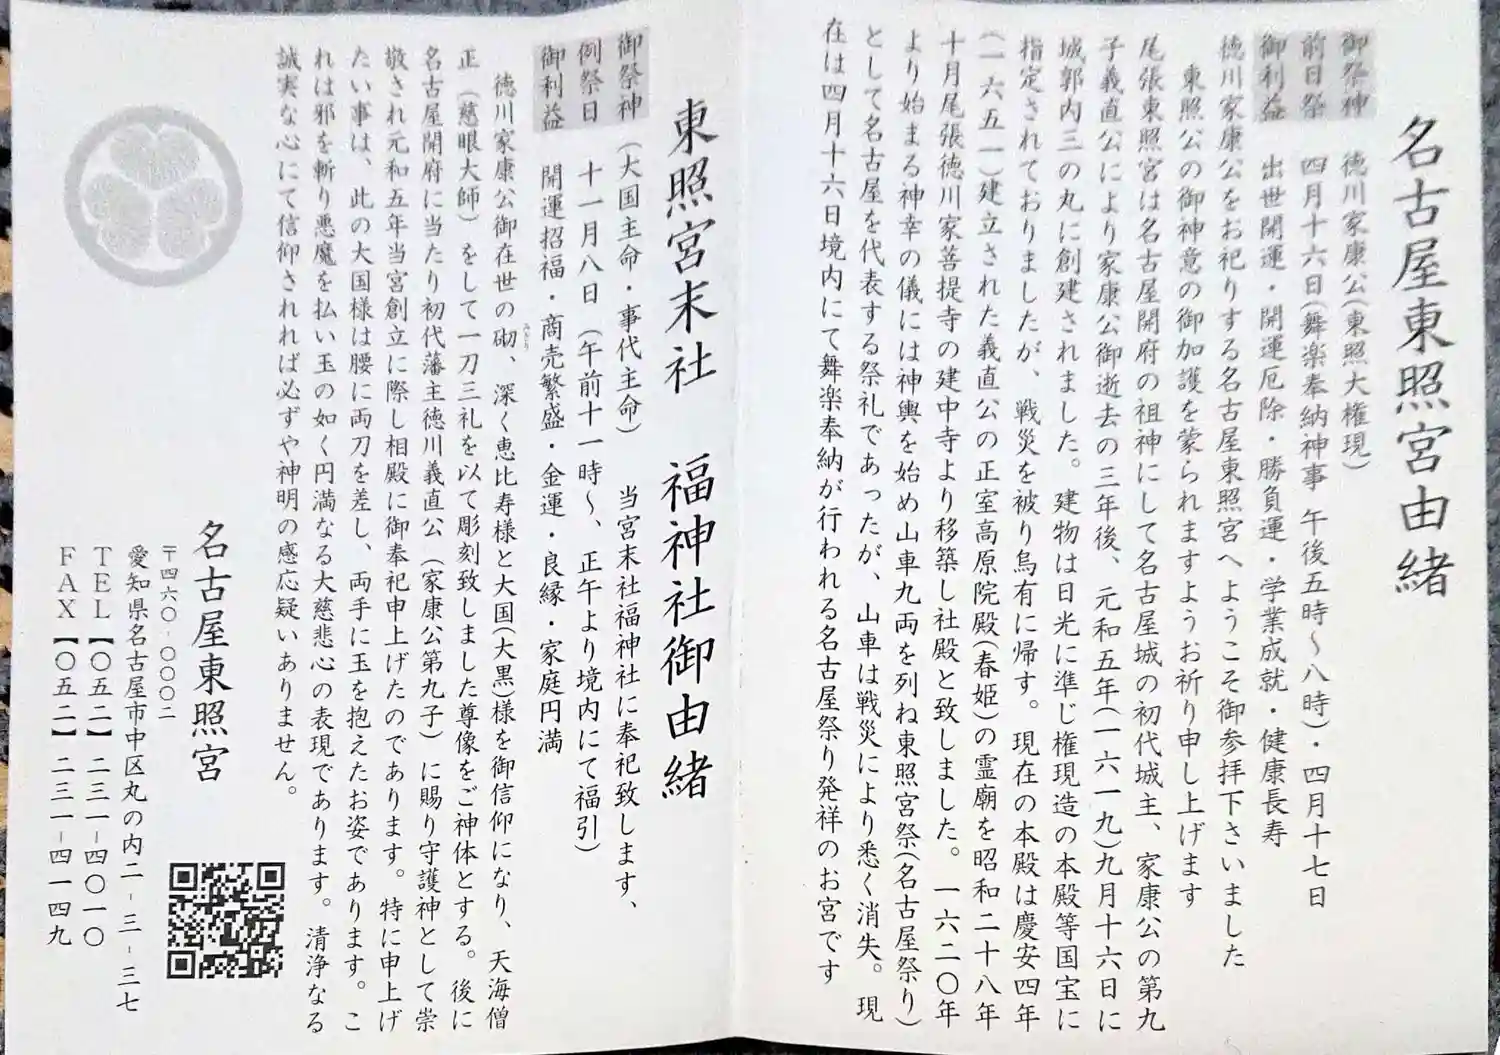 名古屋東照宮由緒
御祭神　徳川家康公(東照大権現)
前日祭　四月十六日(舞楽奉納神事 午後五時〜八時)・四月十七日
御利益　出世開運・開運厄除・勝負運・学業成就・健康長寿
徳川家康公をお祀りする名古屋東照宮へようこそ御参拝下さいました
東照公の御神意の御加護を蒙られますようお祈り申し上げます
尾張東照宮は名古屋開府の祖神にして名古屋城の初代城主、家康公の第九
子義直公により家康公御逝去の三年後、元和五年(一六一九)九月十六日に
城郭内三の丸に創建されました。建物は日光に準じ権現造の本殿等国宝に
指定されておりましたが、戦災を被り烏有に帰す。現在の本殿は慶安四年
(一六五一)建立された義直公の正室高原院殿(春姫)の霊廟を昭和二十八年
十月尾張徳川家菩提寺の建中寺より移築し社殿と致しました。一六二〇年
より始まる神幸の儀には神輿を始め山車九両を列ね東照宮祭(名古屋祭り)
として名古屋を代表する祭礼であったが、山車は戦災により悉く消失。現
在は四月十六日境内にて舞楽奉納が行われる名古屋祭り発祥のお宮です
東照宮末社　福神社御由緒
御祭神（大国主命・事代主命）　当宮末社福神社に奉祀致します、
例祭日　十一月八日（午前十一時〜、正午より境内にて福引）
御利益　開運招福・商売繁盛・金運・良縁・家庭円満
徳川家康公御在世の砌、深く恵比寿様と大国(大黒)様を御信仰になり、天海僧
みぎり
正（慈眼大師）をして一刀三礼を以て彫刻致しました尊像をご神体とする。後に
名古屋開府に当たり初代藩主徳川義直公（家康公第九子）に賜り守護神として崇
敬され元和五年当宮創立に際し相殿に御奉祀申上げたのであります。特に申上げ
たい事は、此の大国様は腰に両刀を差し、両手に玉を抱えたお姿であります。こ
れは邪を斬り悪魔を払い玉の如く円満なる大慈悲心の表現であります。清浄なる
誠実な心にて信仰されれば必ずや神明の感応疑いありません。
名古屋東照宮
〒四六〇-〇〇〇二
愛知県名古屋市中区丸の内二-三-三七
ＴＥＬ【〇五二】二三一-四〇一〇
ＦＡＸ【〇五二】二三一-四一四九